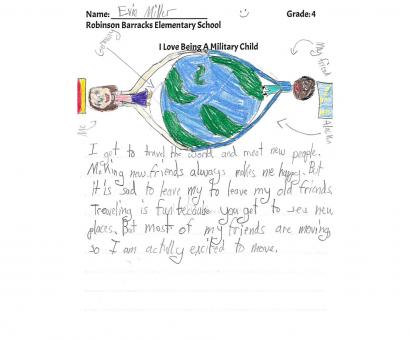 Name: Evin Miller
Grade: 4
Robinson Barracks Elementary School
I Love Being A Military Child
Germany
My friend
Me
Alaska
I get to travel the world and meet new people.
Making new friends always makes me happy. But
it is sad to leave my to leave my old friends.
Traveling is fun because you get to see new
places. But most of my friends are moving
so I am actully excited to move.